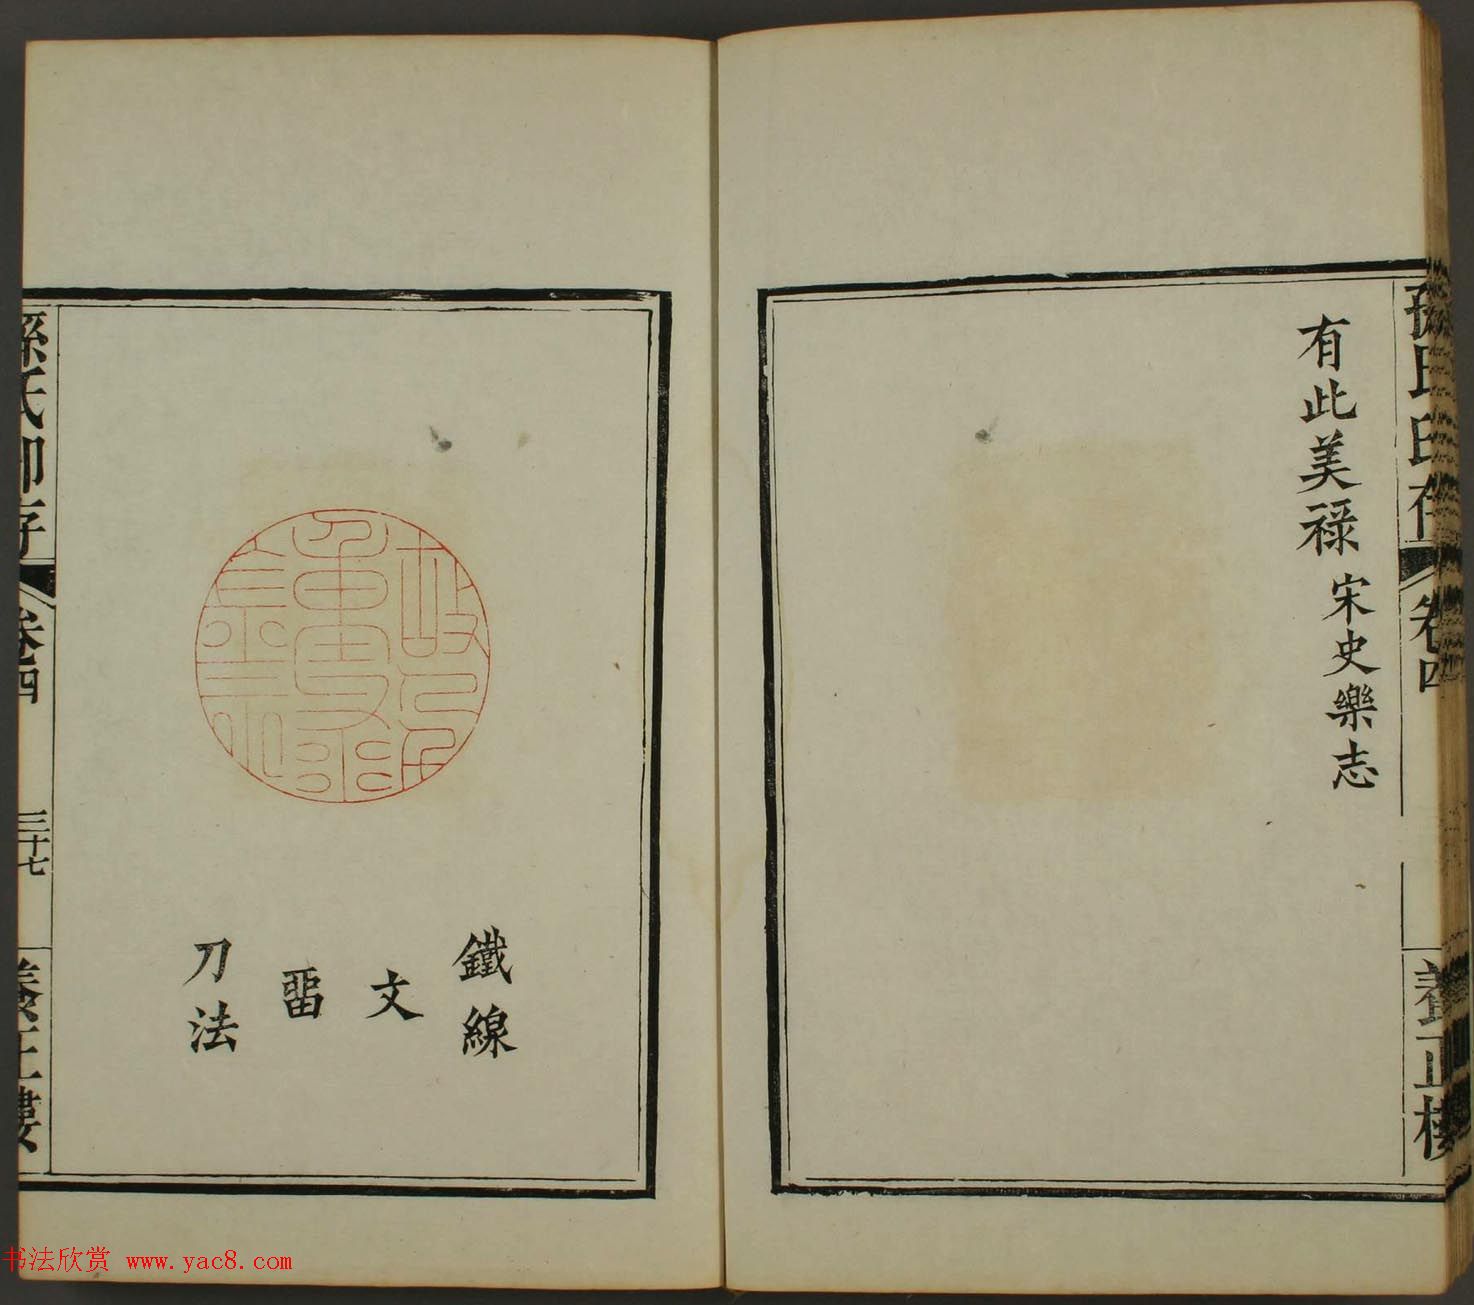 有此美祿 宋史樂志
孫氏印存
卷四
養正樓
鐵線
文
畱
刀法
孫氏印存
卷四
三十七
養正樓
书法欣赏 www.yac8.com